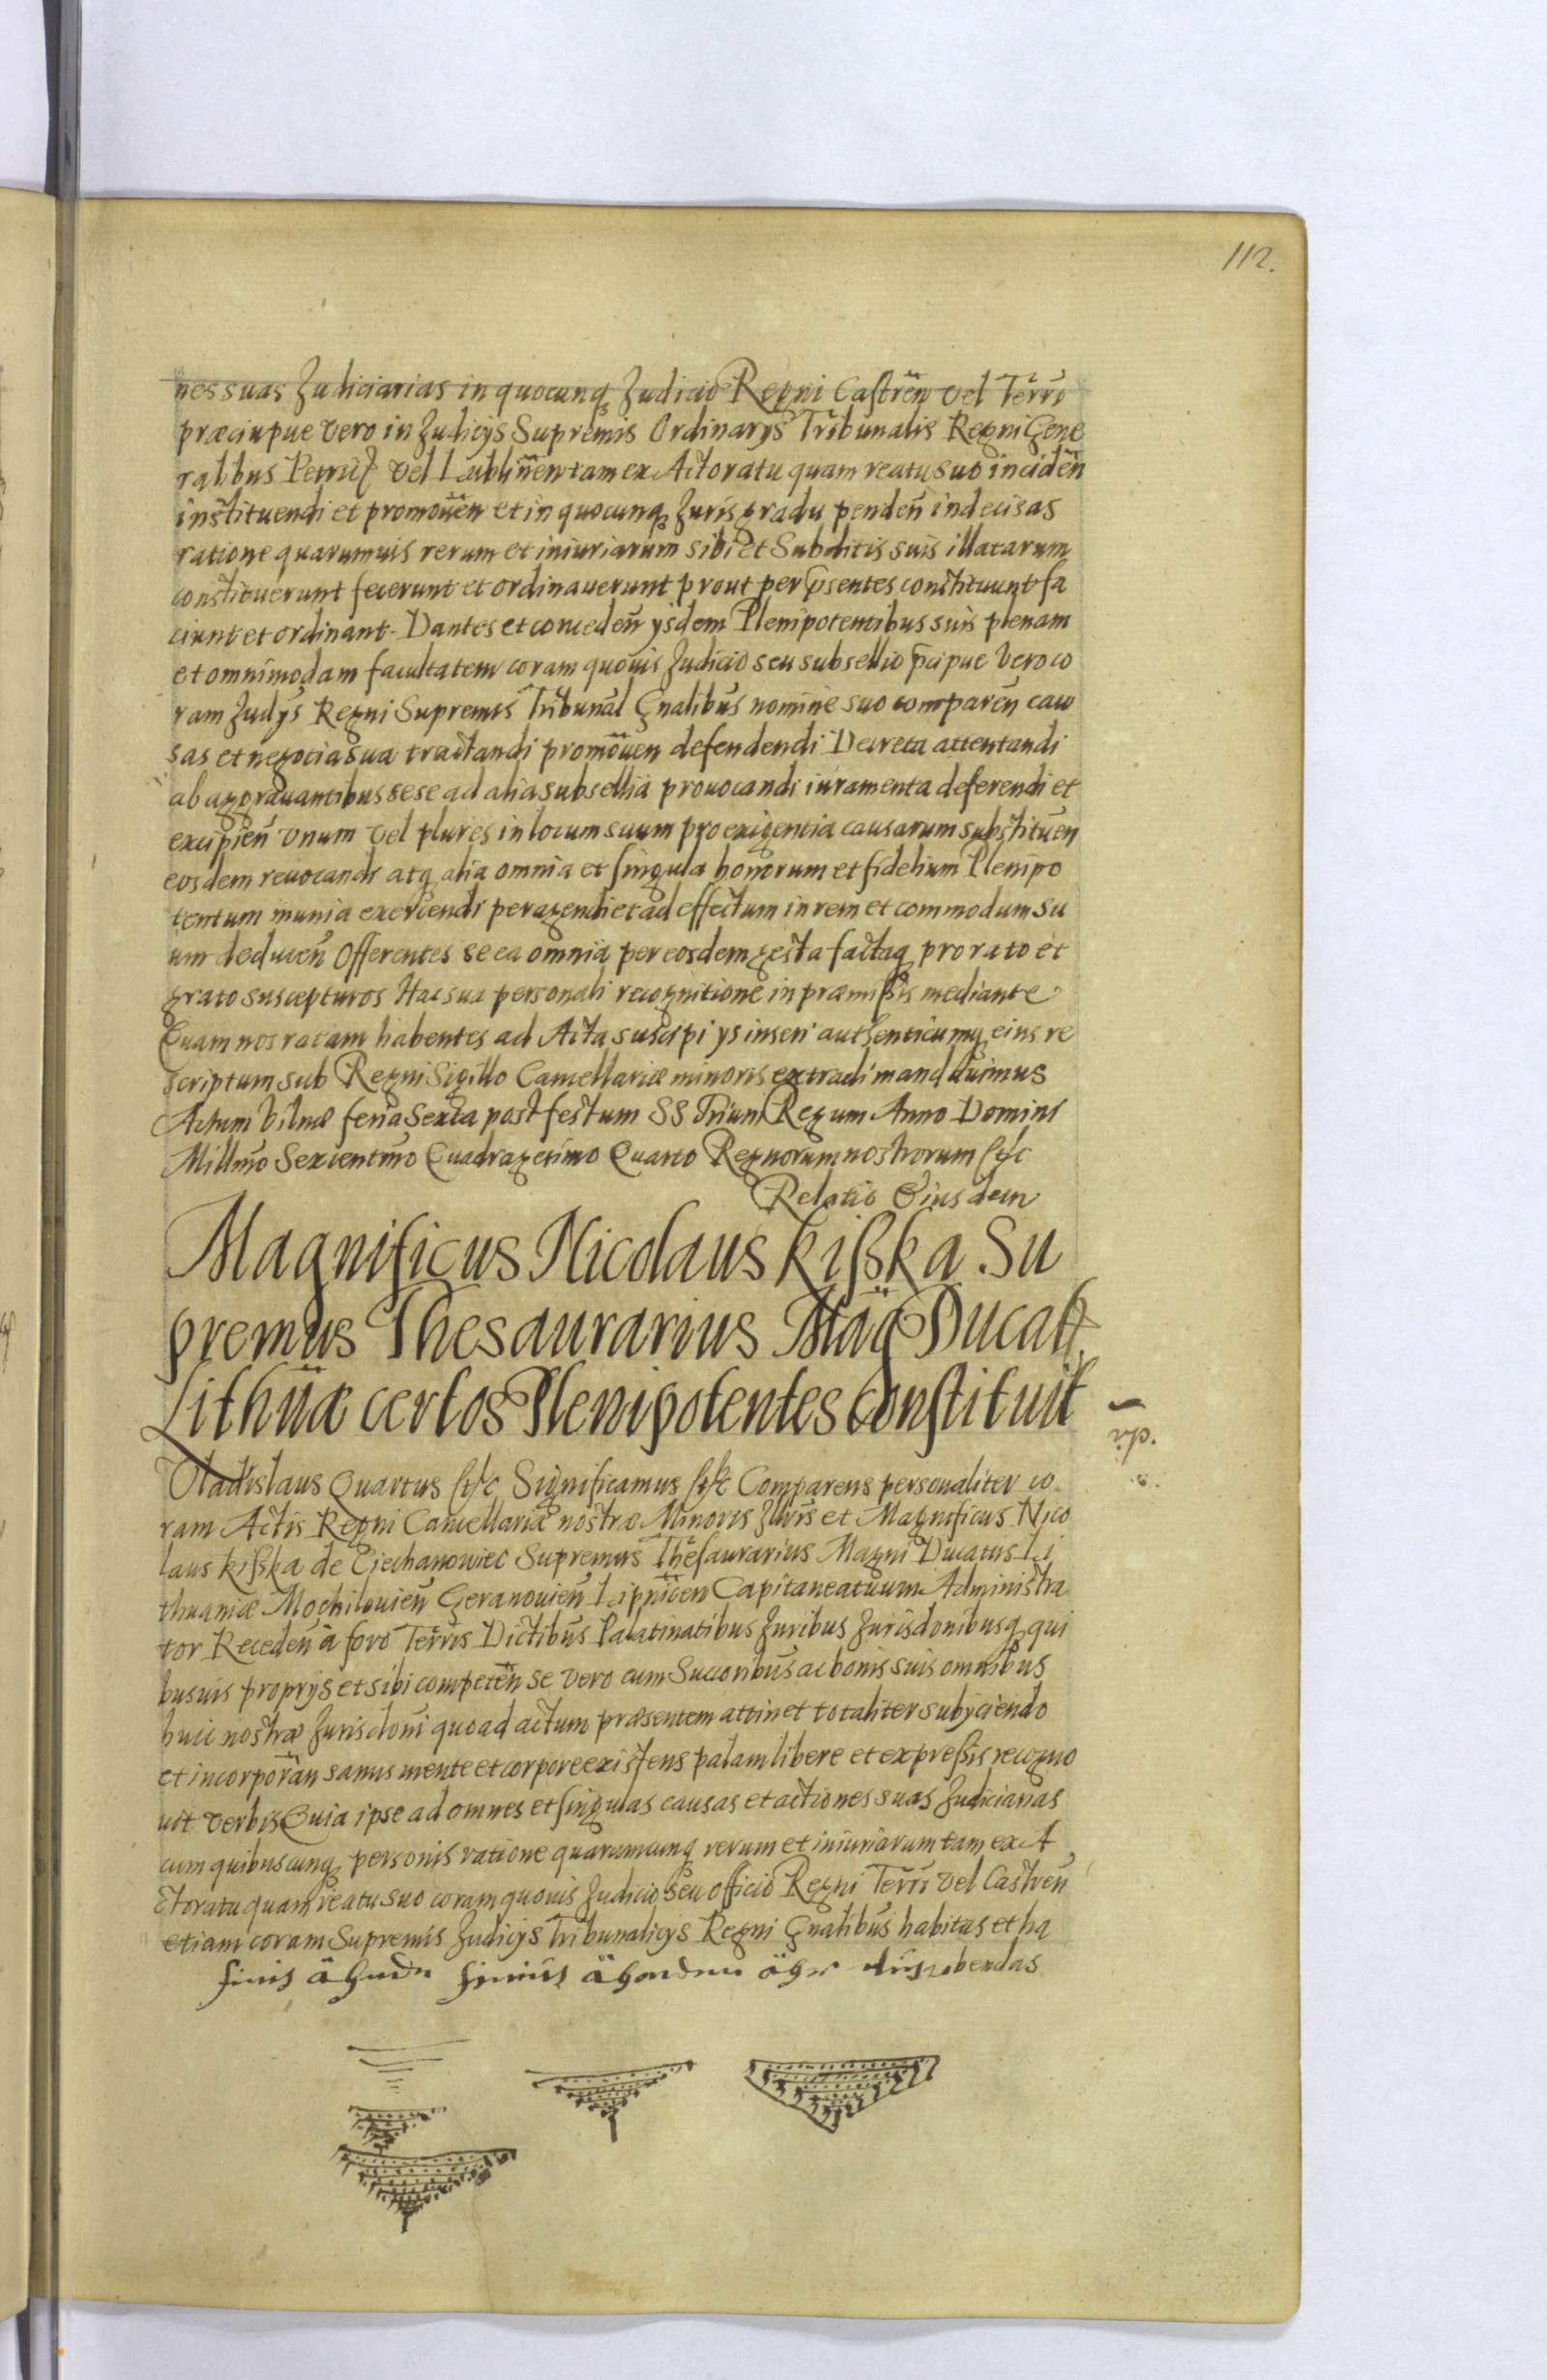 112.
nes suas Judiciarias in quocunq Judicio Regni Castren vel Terri
præciupue vero in Judicijs Supremis Ordinarijs Tribunalis Regni Gene
ralibus Petric vel Lublinen tam ex Actoratu quam reatu suo inciden
instituendi et promouen et in quocunq Juris gradu penden indecisas
ratione quarumuis rerum et iniuriarum sibi et Subditis suis illatarum
constituerunt fecerunt et ordinauerunt prout per psentes constituunt fa
ciunt et ordinant. Dantes et conceden ysdem Plenipotentibus suis plenam
et omnimodam facultatem coram quouis Judicio seu subsellio pcipue vero co
ram Judys Regni Supremis Tribunal Gnalibus nomine suo comparen cau
sas et negocia sua tractandi promouen defendendi Decreta attentandi
ab aggrauantibus sese ad alia subsellia prouocandi iuramenta deferendi et
excipien vnum vel plures in locum suum pro exigentia causarum substituen
eosdem reuocandi atq alia omnia et singula bonorum et fidelium Plenipo
tentum munia exercendi peragendi et ad effectum in rem et commodum su
um deducen Offerentes se ea omnia per eosdem gesta factaq pro rato et
grato suscepturos Hac sua personali recognitione in præmissis mediante
Quam nos ratam habentes ad Acta suscipi ys inseri authenticumq eius re
scriptum sub Regni Sigillo Cancellariæ minoris extradi mandauimus
Actum Vilnæ feria Sexta post festum SS Trium Regum Anno Domini
Millmo Sexcentmo Quadragesimo Quarto Regnorum nostrorum etc
Relatio Eiusdem
Magnificus Nicolaus Kißka Su
premus Thesaurarius Mag Ducat
Lithuæ certos Plenipotentes constituit
Vladislaus Quartus etc Significamus etc Comparens personaliter co
ram Actis Regni Cancellariæ nostræ Minoris Jllris et Magnificus Nico
laus Kißka de Ciechanowiec Supremus Thesaurarius Magni Ducatus Li
thuaniæ Mochilouien Geranouien Lipnicen Capitaneatuum Administra
tor Receden a foro Terris Dictibus Palatinatibus Juribus Jurisdonibusq qui
busuis proprijs et sibi competen se vero cum Succoribus ac bonis suis omnibus
huic nostræ Jurisdoni quo ad actum præsentem attinet totaliter subijciendo
et incorporan sanus mente et corpore existens palam libere et expressis recogno
uit verbis Quia ipse ad omnes et singulas causas et actiones suas Judiciarias
cum quibuscunq personis ratione quarumcunq rerum et iniuriarum tam ex A
ctoratu quam reatu suo coram quouis Judicio seu officio Regni Terri vel Castren
etiam coram Supremis Judicijs Tribunalicijs Regni Gnalibus habitas et ha
bendas